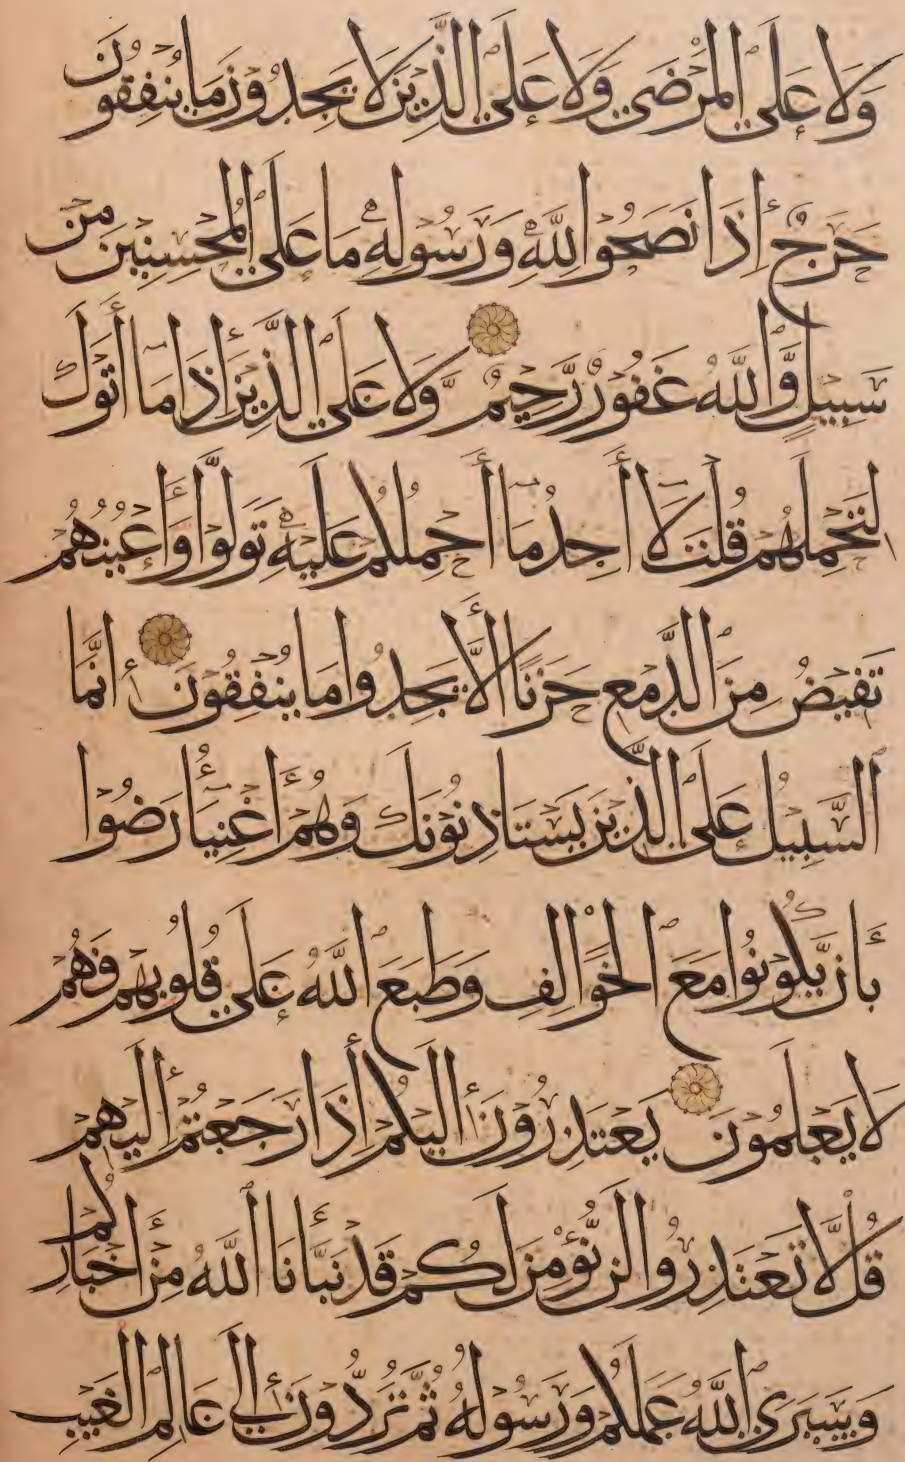 وَلَا عَلَى الْمَرْضَى وَلَا عَلَى الَّذِينَ لَا يَجِدُونَ مَا يُنْفِقُونَ
حَرَجٌ إِذَا نَصَحُوا لِلَّهِ وَرَسُولِهِ مَا عَلَى الْمُحْسِنِينَ مِنْ
سَبِيلٍ وَاللَّهُ غَفُورٌ رَّحِيمٌ وَّلَا عَلَى الَّذِينَ إِذَا مَا أَتَوْكَ
لِتَحْمِلَهُمْ قُلْتَ لَا أَجِدُ مَا أَحْمِلُكُمْ عَلَيْهِ تَوَلَّوْا وَّأَعْيُنُهُمْ
تَفِيضُ مِنَ الدَّمْعِ حَزَنًا أَلَّا يَجِدُوا مَا يُنْفِقُونَ إِنَّمَا
السَّبِيلُ عَلَى الَّذِينَ يَسْتَاذِنُونَكَ وَهُمْ أَغْنِيَاءُ رَضُوا
بِأَن يَّكُونُوا مَعَ الْخَوَالِفِ وَطَبَعَ اللَّهُ عَلَى قُلُوبِهِمْ وَهُمْ
لَا يَعْلَمُونَ يَعْتَذِرُونَ إِلَيْكُمْ إِذَا رَجَعْتُمْ إِلَيْهِمْ
قُل لَّا تَعْتَذِرُوا لَن نُّؤْمِنَ لَكُمْ قَدْ نَبَّأَنَا اللَّهُ مِنْ أَخْبَارِكُمْ
وَسَيَرَى اللَّهُ عَمَلَكُمْ وَرَسُولُهُ ثُمَّ تُرَدُّونَ إِلَى عَالِمِ الْغَيْبِ